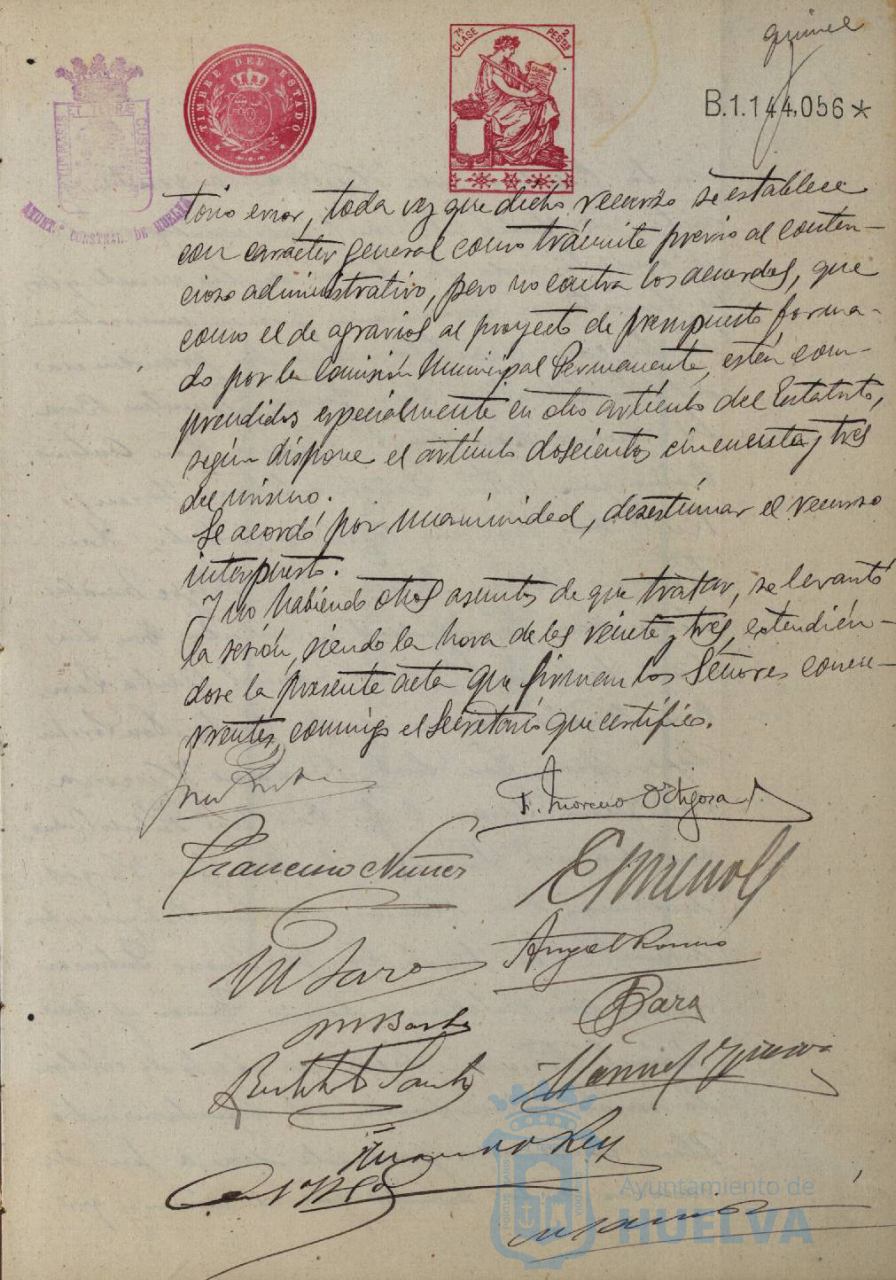 quince
7ª CLASE 2 PESTAS
TIMBRE DEL ESTADO
B.1.144,056*
PORTUS MARIS ET TERRE CUSTODIA
AYUNT.º CONSTNAL. DE HUELVA
torio error, toda vez que dicho recurso se establece
con carácter general como trámite previo al conten-
cioso administrativo, pero no contra los acuerdos, que
como el de agravios al proyecto de presupuesto forma-
do por la Comisión Municipal Permanente, están com-
prendidos especialmente en otro artículo del Estatuto,
según dispone el artículo doscientos cincuenta y tres
del mismo.
Se acordó por unanimidad, desestimar el recurso
interpuesto.
Y no habiendo otros asuntos de que tratar, se levantó
la sesión, siendo la hora de las veinte y tres, extendién-
dose la presente acta que firman los Señores concu-
rrentes, conmigo el Secretario que certifico.
F. Moreno Ortigosa
Francisco Nuñez
Angel Romero
Jara
Manuel
Rey
Ayuntamiento de
HUELVA